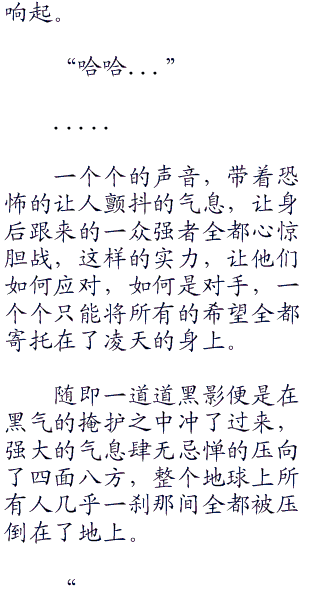 响起。
“哈哈...”
.....
一个个的声音，带着恐
怖的让人颤抖的气息，让身
后跟来的一众强者全都心惊
胆战，这样的实力，让他们
如何应对，如何是对手，一
个个只能将所有的希望全都
寄托在了凌天的身上。
随即一道道黑影便是在
黑气的掩护之中冲了过来，
强大的气息肆无忌惮的压向
了四面八方，整个地球上所
有人几乎一刹那间全都被压
倒在了地上。
“